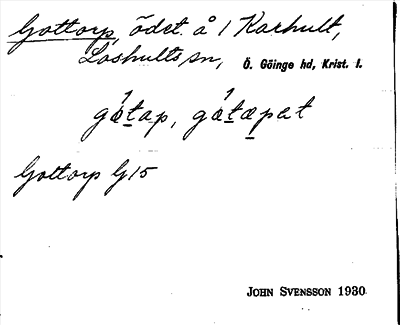 Gottorp, ödet. å 1 Karhult,
Loshults sn, Ö. Göinge hd, Krist. l.
gɑ́tap, gɑ́tæpat
Gottorp G15
JOHN SVENSSON 1930.